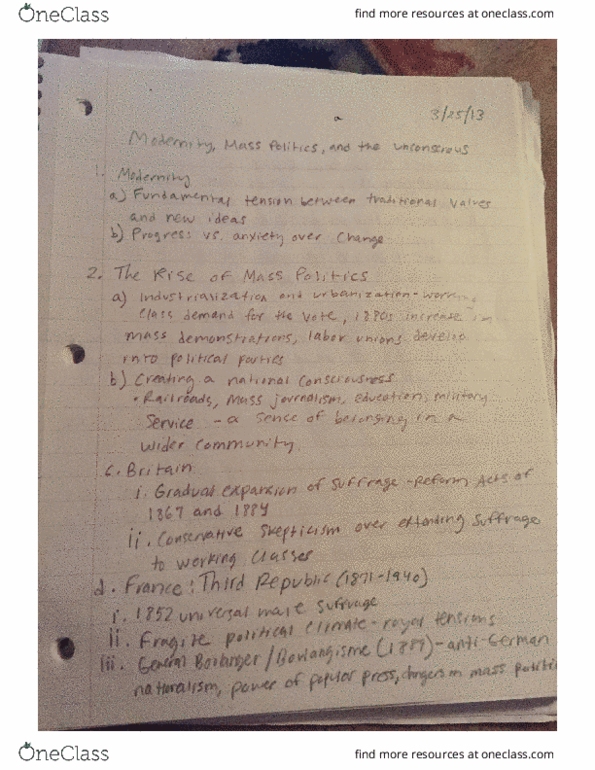 OneClass
find more resources at oneclass.com
3/25/13
Modernity, Mass Politics, and the Unconscious
1. Modernity
a) Fundamental tension between traditional values
and new ideas
b) Progress vs. anxiety over change
2. The Rise of Mass Politics
a) Industrialization and urbanization - working
class demand for the vote, 1880s increase in
mass demonstrations, labor unions develop
into political parties
b) Creating a national consciousness
• Railroads, mass journalism, education, military
service - a sense of belonging in a
wider community
c. Britain
i. Gradual expansion of suffrage - Reform Acts of
1867 and 1884
ii. Conservative skepticism over extending suffrage
to working classes
d. France: Third Republic (1871-1940)
i. 1852 universal male suffrage
ii. Fragile political climate - royal tensions
iii. General Boulanger / Boulangisme (1889) - anti-German
naturalism, power of popular press, dangers in mass politi
OneClass
find more resources at oneclass.com